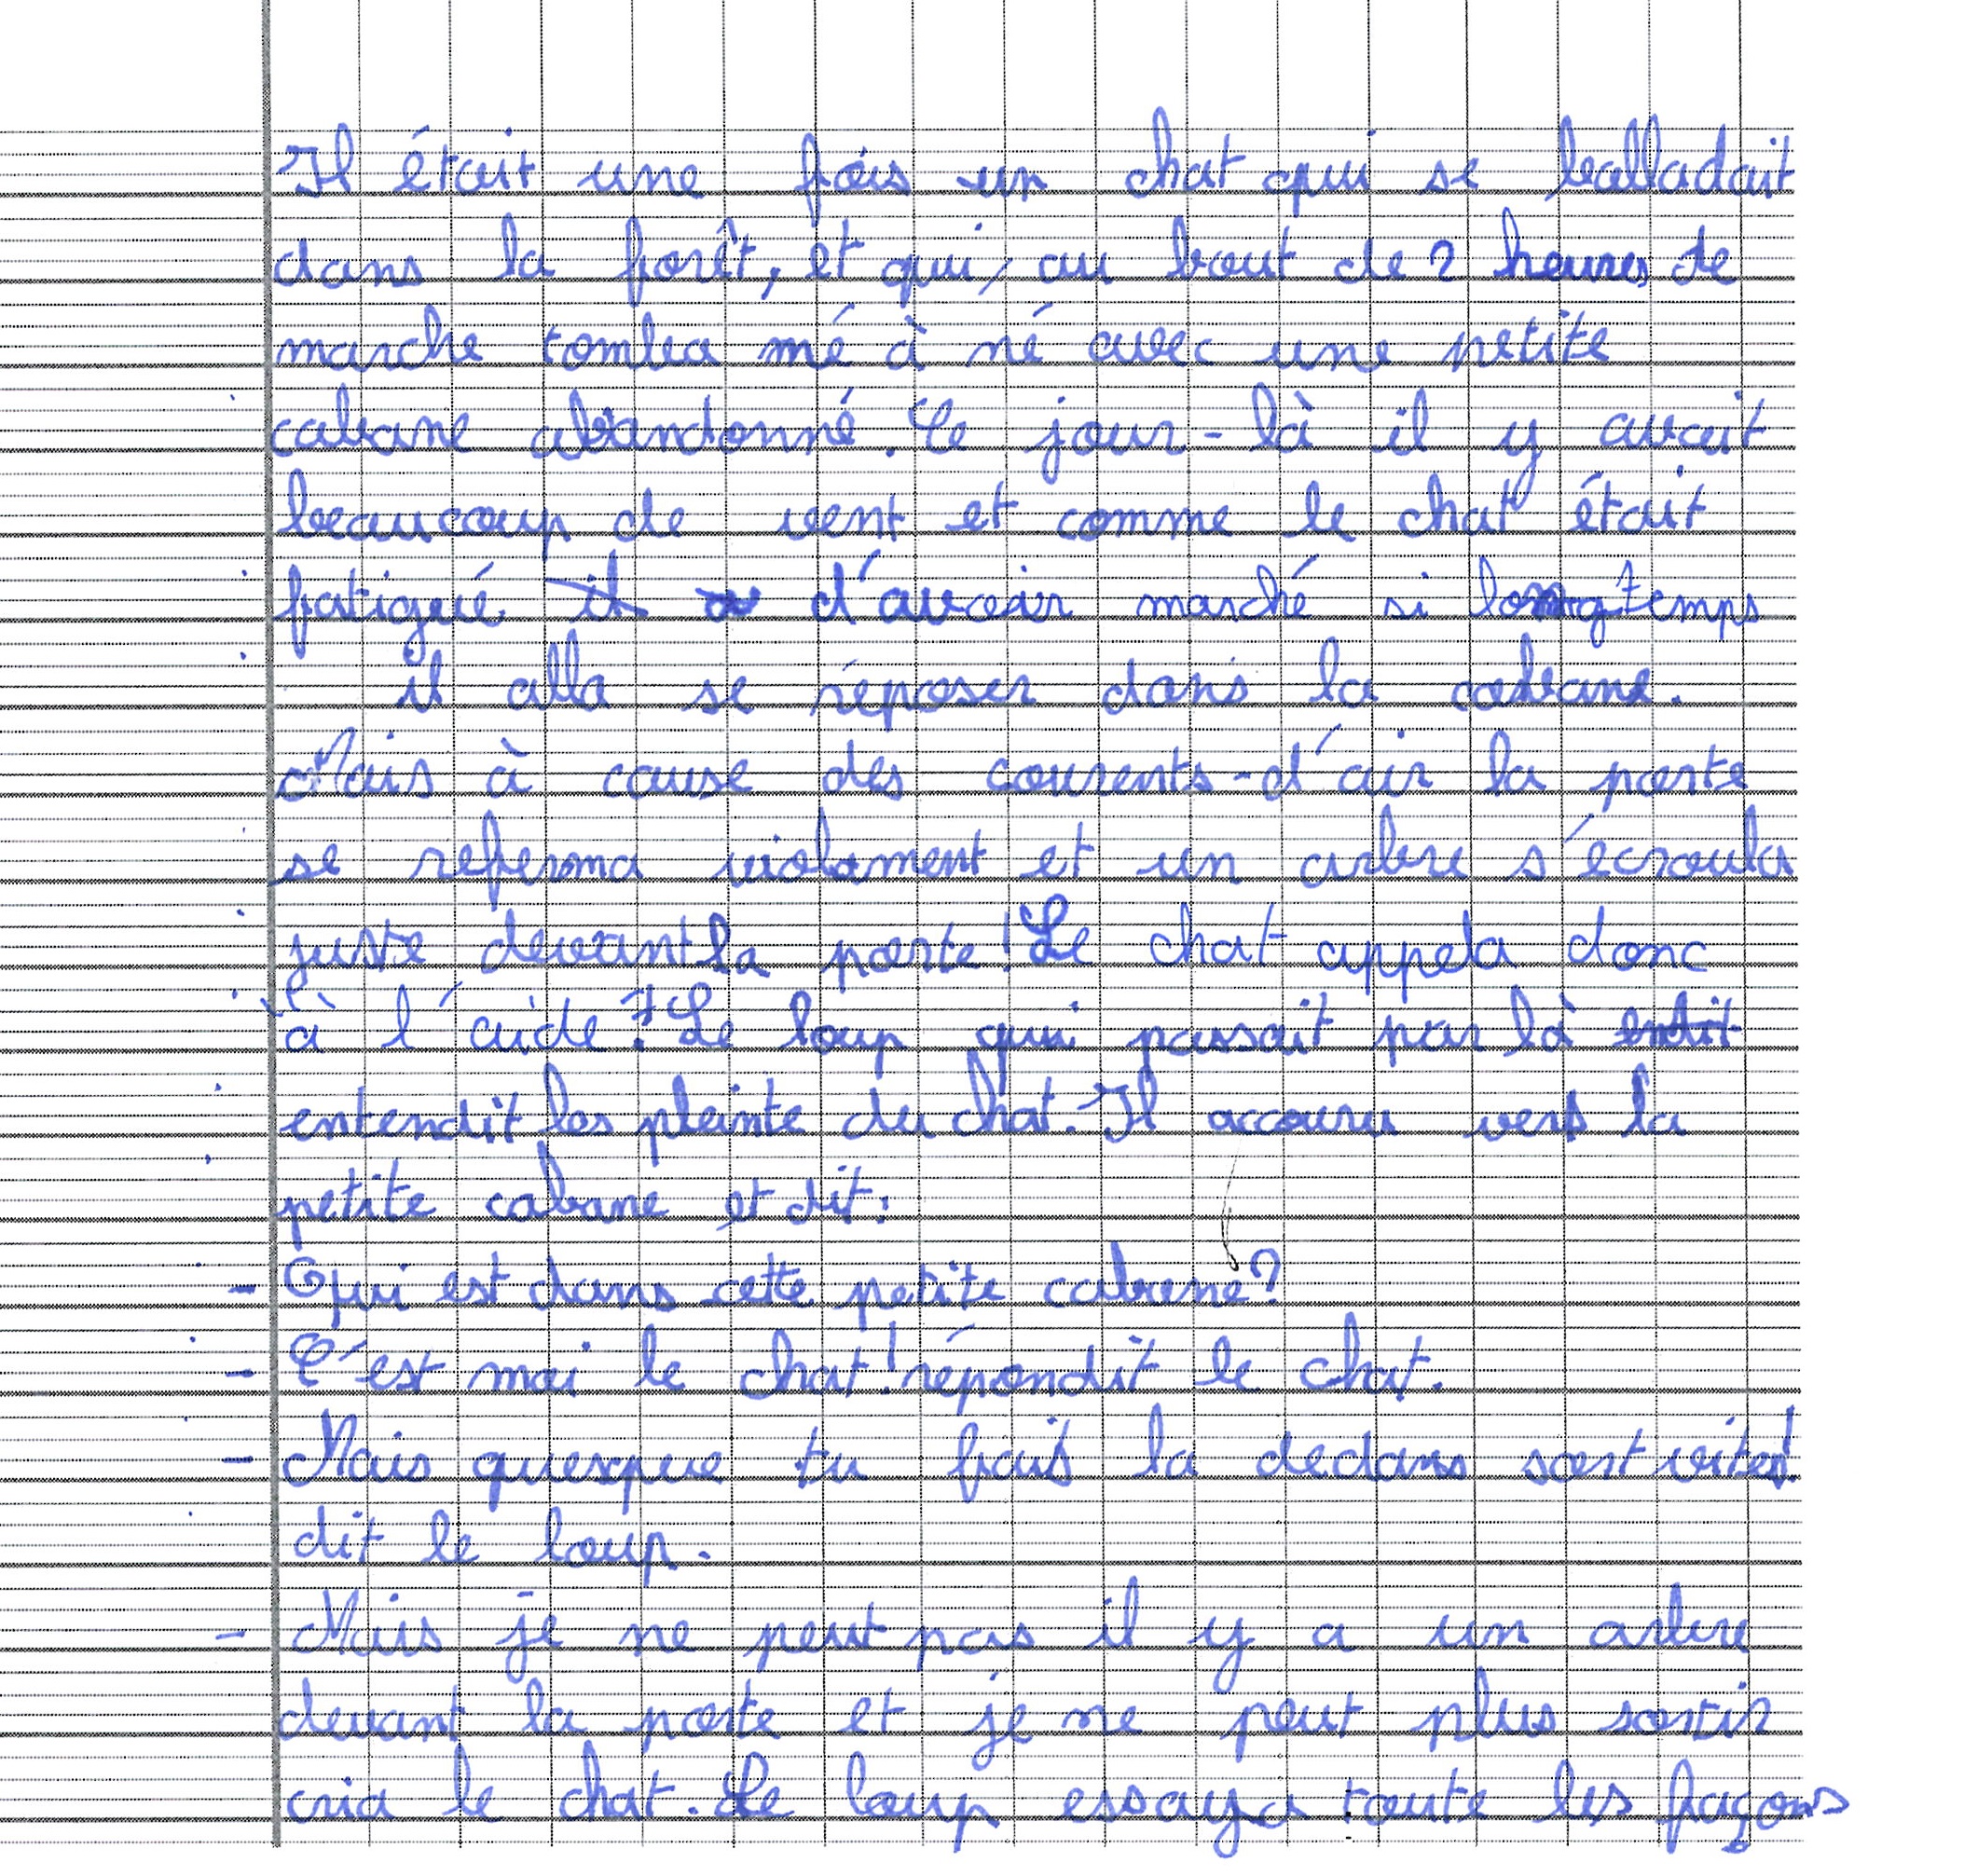 Il était une fois un chat qui se balladait
dans la forêt, et qui, au bout de 2 heures de
marche tomba mé à né avec une petite
cabane abandonné. Ce jour-là il y avait
beaucoup de vent et comme le chat était
fatigué il d'avoir marché si longtemps
il alla se réposer dans la cabane.
Mais à cause des courents-d'air la porte
se referma violament et un arbre s'écroula
juste devant la porte! Le chat appela donc
à l'aide! Le loup qui passait par là
entendit les pleinte du chat. Il accouru vers la
petite cabane et dit:
- Qui est dans cette petite cabane?
- C'est moi le chat! répondit le chat.
- Mais quesque tu fais la dedans sort vite!
dit le loup.
- Mais je ne peut pas il y a un arbre
devant la porte et je ne peut plus sortir
cria le chat. Le loup essaya toute les façons